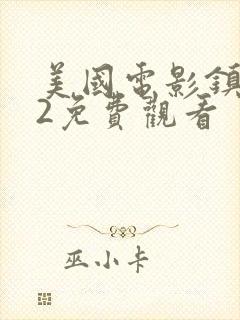 美國電影鎮
2免費觀看
巫小卡